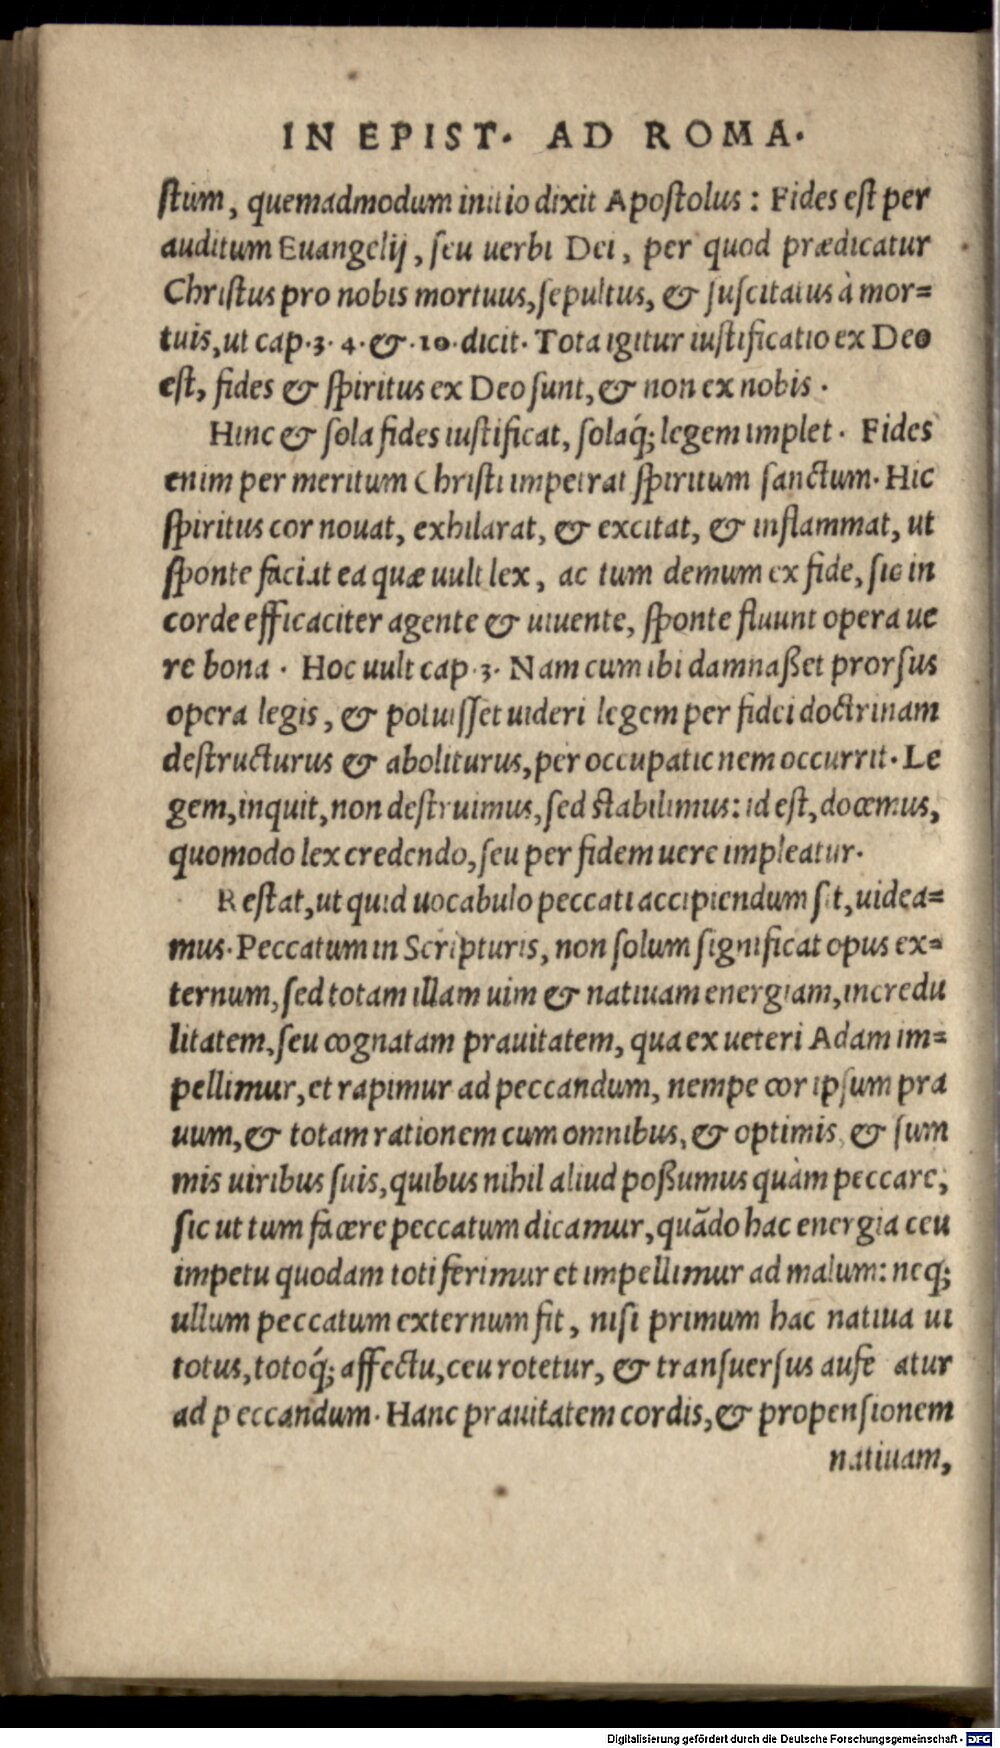 IN EPIST. AD ROMA.
stum, quemadmodum initio dixit Apostolus : Fides est per
auditum Euangelij, seu uerbi Dei, per quod prædicatur
Christus pro nobis mortuus, sepultus, & suscitatus à mor=
tuis, ut cap. 3. 4. &. 10. dicit. Tota igitur iustificatio ex Deo
est, fides & spiritus ex Deo sunt, & non ex nobis.
Hinc & sola fides iustificat, solaq́; legem implet. Fides
enim per meritum Christi impetrat spiritum sanctum. Hic
spiritus cor nouat, exhilarat, & excitat, & inflammat, ut
sponte faciat ea quæ uult lex, ac tum demum ex fide, sic in
corde efficaciter agente & uiuente, sponte fluunt opera ue
re bona. Hoc uult cap. 3. Nam cum ibi damnaßet prorsus
opera legis, & potuisset uideri legem per fidei doctrinam
destructurus & aboliturus, per occupationem occurrit. Le
gem, inquit, non destruimus, sed stabilimus: id est, docemus,
quomodo lex credendo, seu per fidem uere impleatur.
Restat, ut quid uocabulo peccati accipiendum sit, uidea=
mus. Peccatum in Scripturis, non solum significat opus ex=
ternum, sed totam illam uim & natiuam energiam, incredu
litatem, seu cognatam prauitatem, qua ex ueteri Adam im=
pellimur, et rapimur ad peccandum, nempe cor ipsum pra
uum, & totam rationem cum omnibus, & optimis, & sum
mis uiribus suis, quibus nihil aliud poßumus quàm peccare,
sic ut tum facere peccatum dicamur, quãdo hac energia ceu
impetu quodam toti ferimur et impellimur ad malum: neq;
ullum peccatum externum fit, nisi primum hac natiua ui
totus, totoq́; affectu, ceu rotetur, & transuersus aufe atur
ad peccandum. Hanc prauitatem cordis, & propensionem
natiuam,
Digitalisierung gefördert durch die Deutsche Forschungsgemeinschaft - DFG